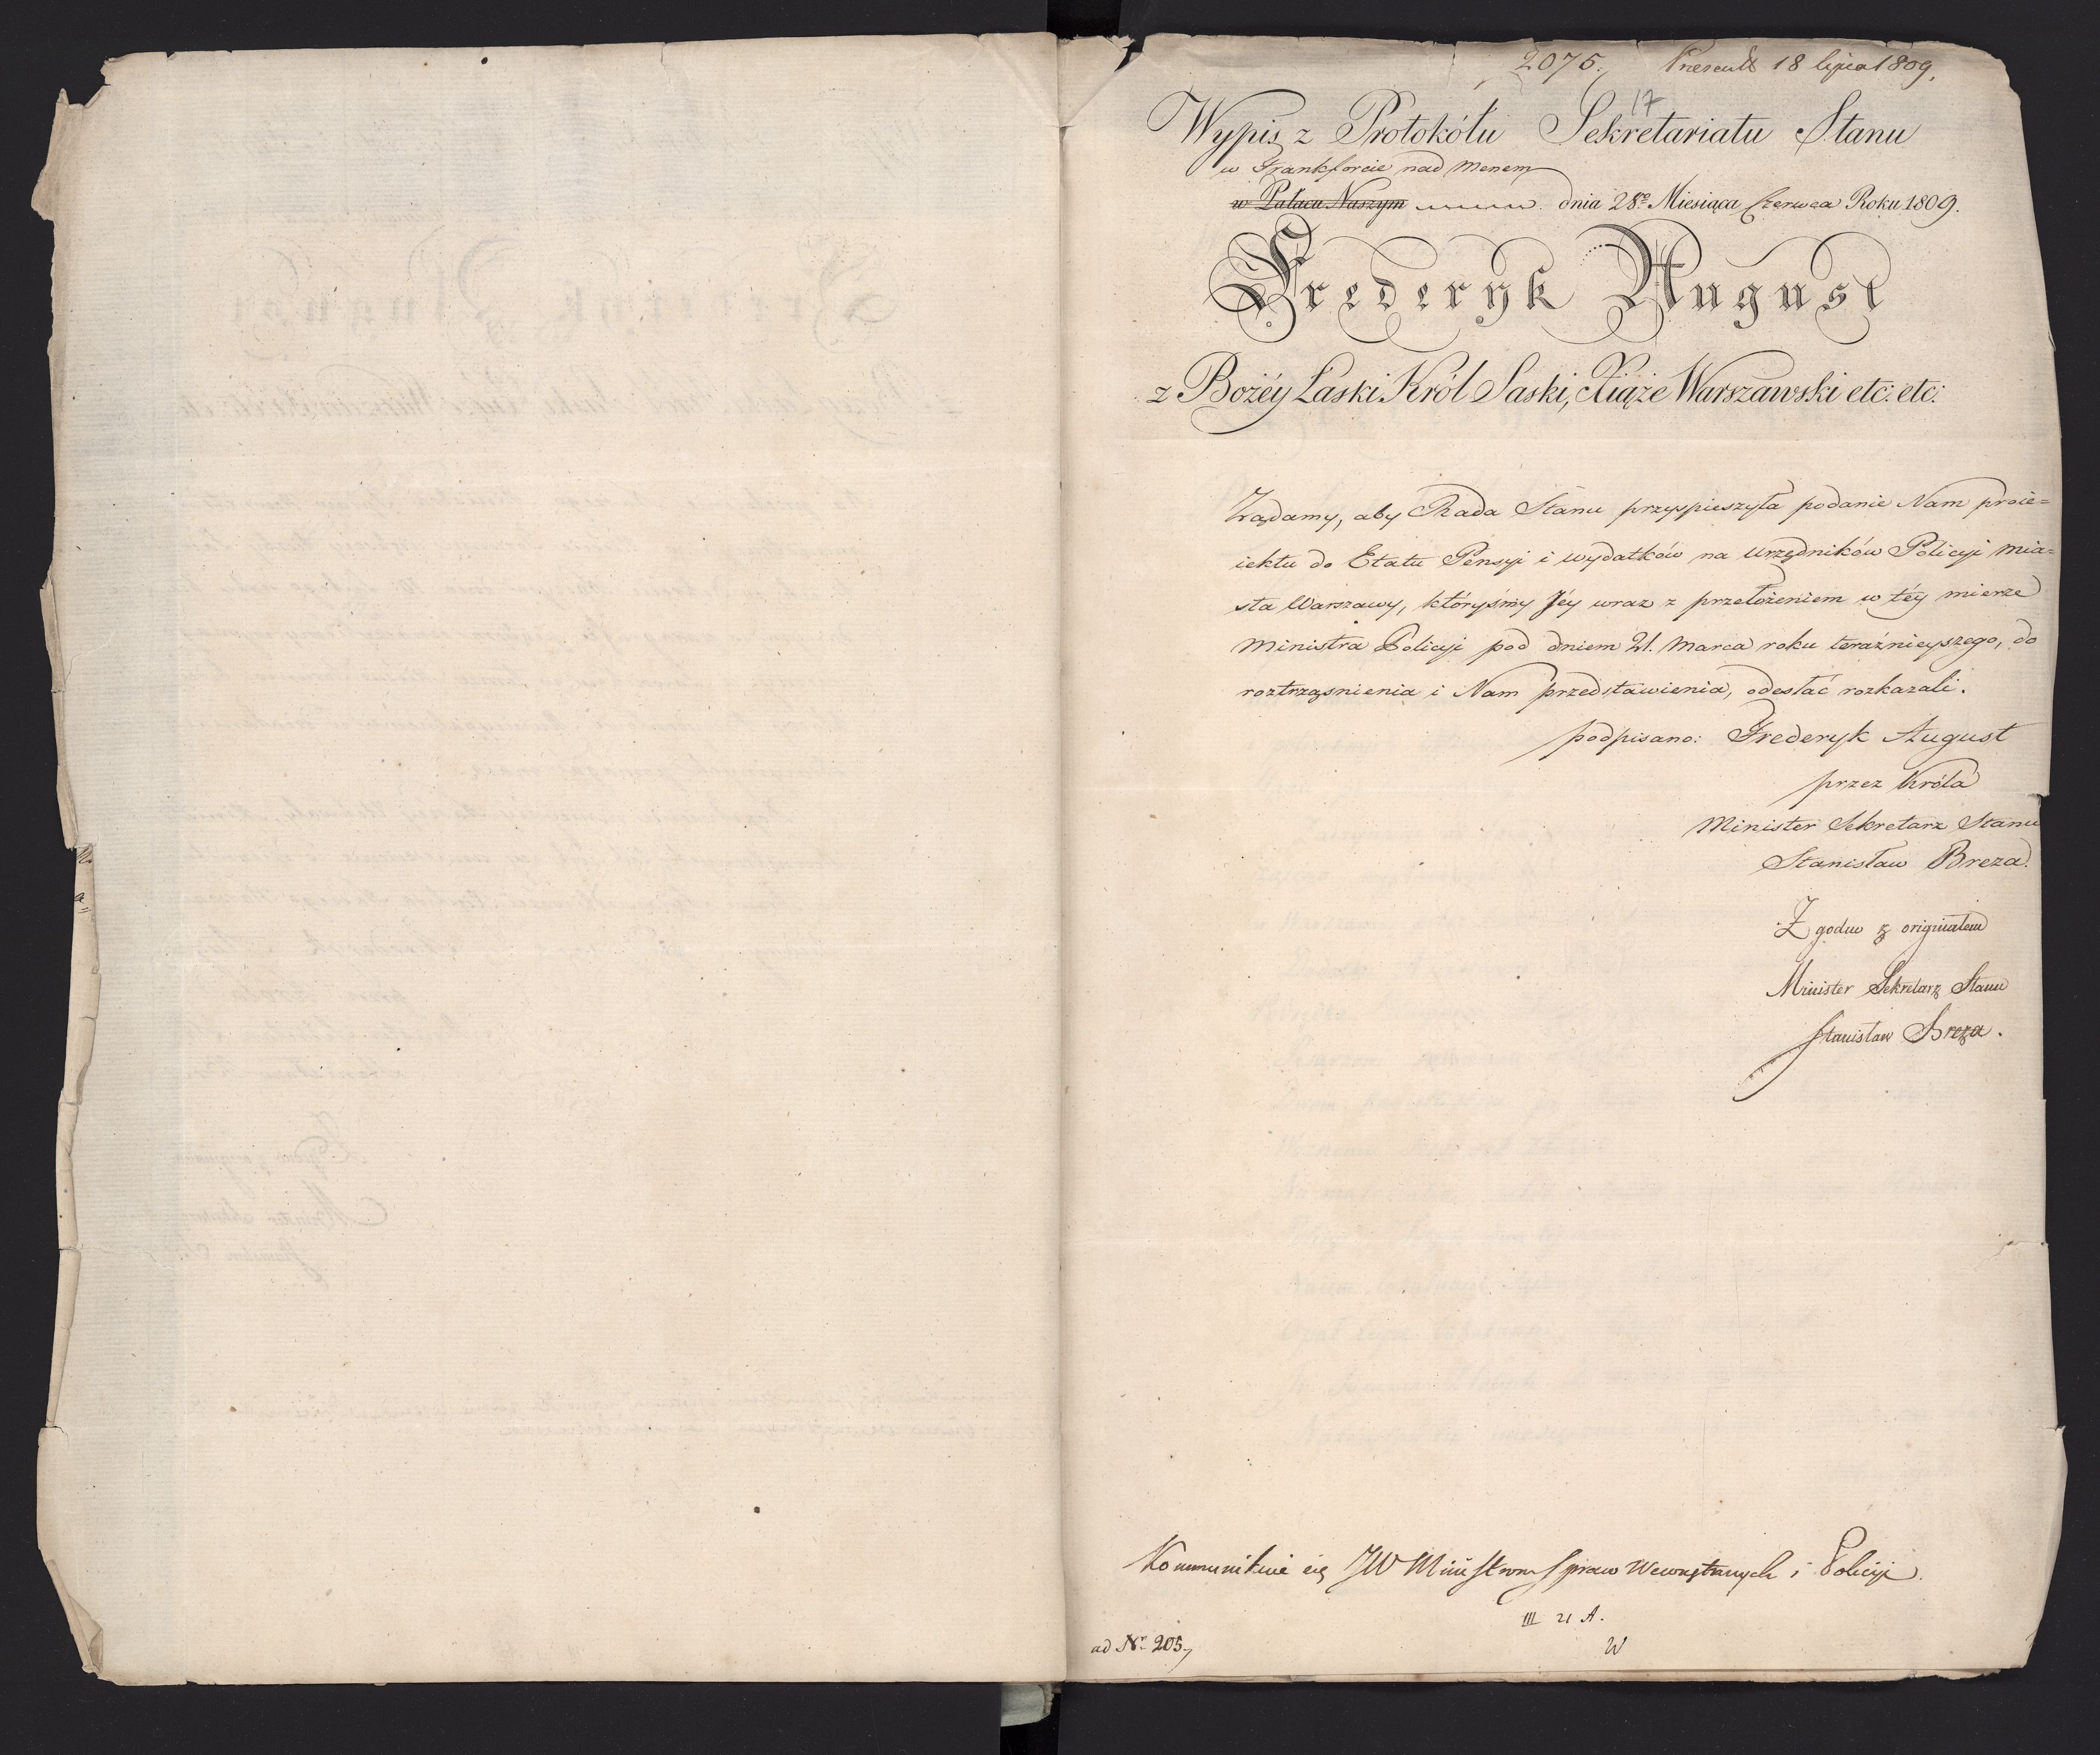 2075. Present: 18 lipca 1809.
17
Wypis z Protokółu Sekretariatu Stanu
w Frankforcie nad Menem
w Pałacu Naszym dnia 28go Miesiąca Czerwca Roku 1809.
Frederyk August
z Bożéy Łaski Król Saski, Xiąże Warszawski etc: etc:
Żądamy, aby Rada Stanu przyspieszyła podanie Nam proie=
iektu do Etatu Pensyi i wydatków na Urzędników Policyi mia=
sta Warszawy, któryśmy Jéy wraz z przełożeniem w téy mierze
Ministra Policyi pod dniem 21. Marca roku teraźnieyszego, do
roztrząsnienia i Nam przedstawienia, odesłać rozkazali.
podpisano: Frederyk August
przez Króla
Minister Sekretarz Stanu
Stanisław Breza.
Zgodno z originałem
Minister Sekretarz Stanu
Stanisław Breza.
Kommunikuie się JW Ministrom Spraw Wewnętrznych i Policyi.
III 21 A.
W
ad Nr. 205.